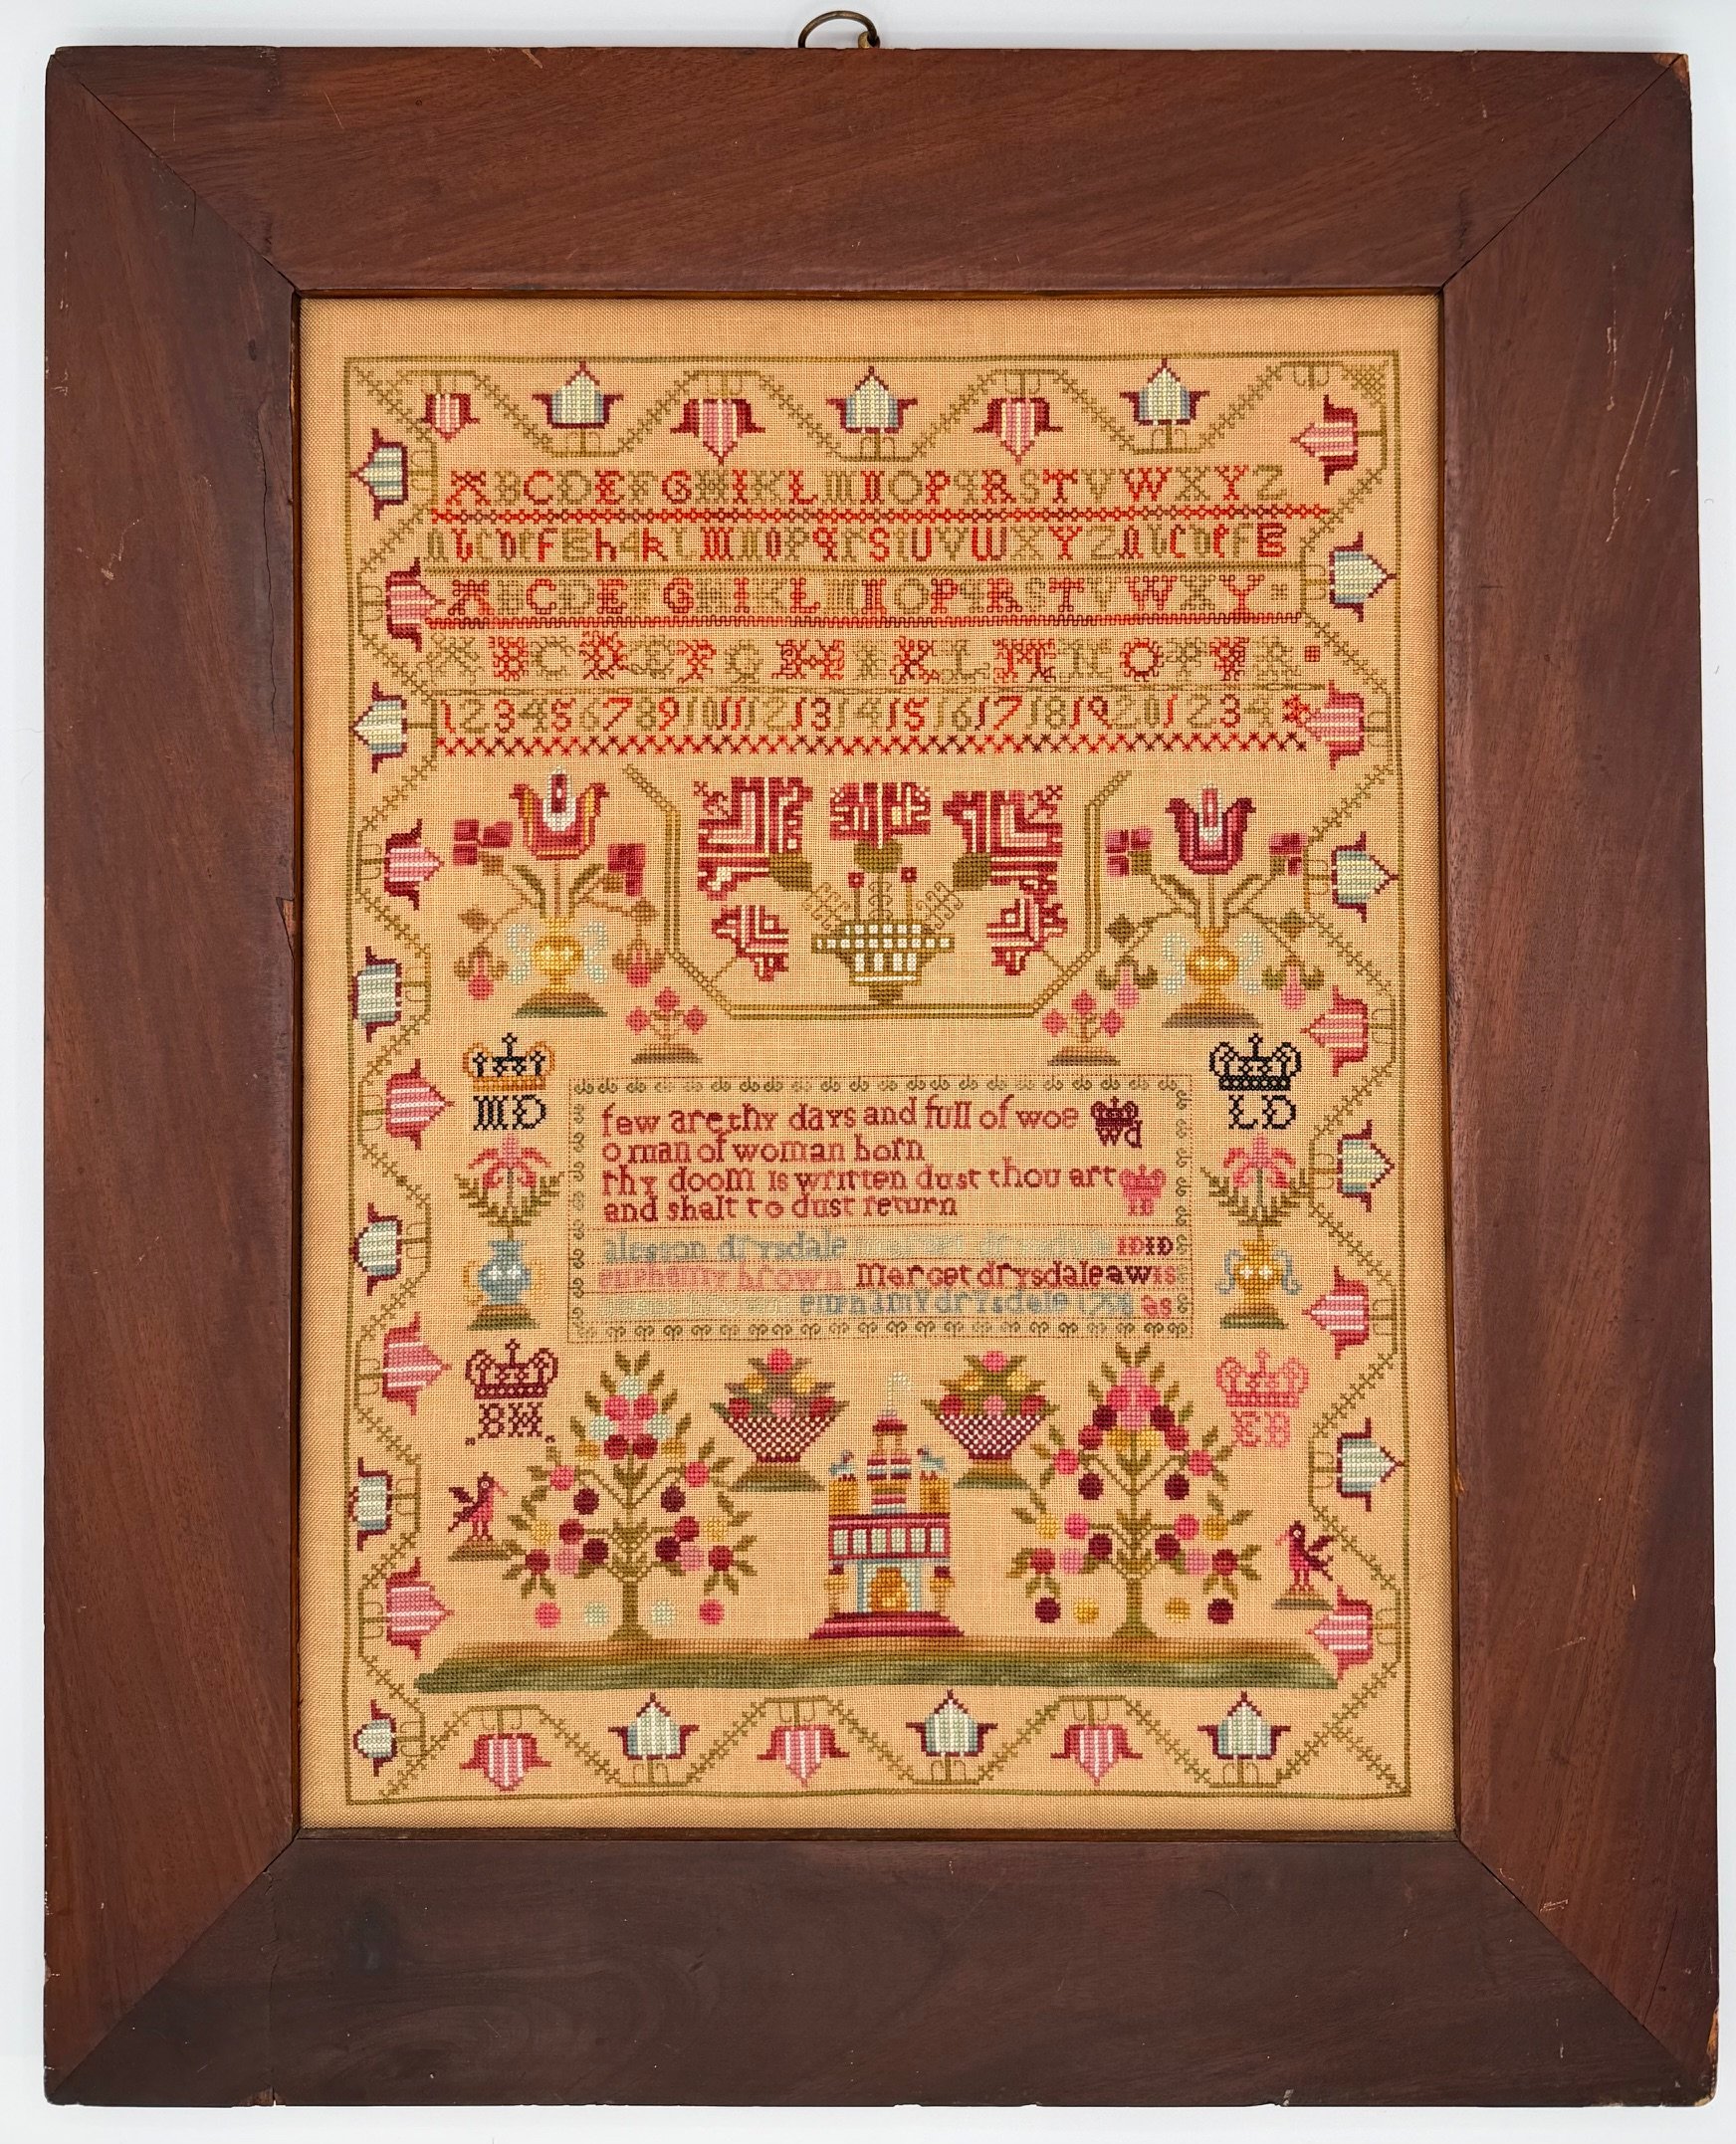 ABCDEFGHIKLMNOPQRSTVWXYZ
abcdefghiklmnopqrstuvwxyzabcdefg
ABCDEFGHIKLMNOPQRSTVWXY
ABCDEFGHIKLMNOPQR
123456789101112131415161718192021234
MD
LD
few are thy days and full of woe
wd
o man of woman born
thy doom is written dust thou art
and shalt to dust return
alesson drysdale drysdale IDID
euphemy brown Marget drysdale aw is
brown euphimy drysdale as
BH
EB